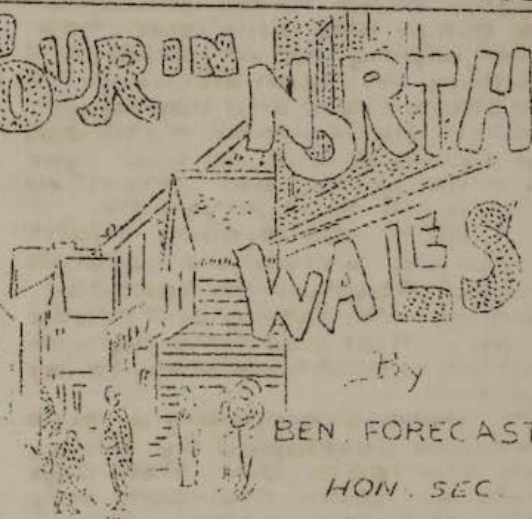 TOUR IN NORTH
WALES
By
BEN. FORECAST
HON. SEC.